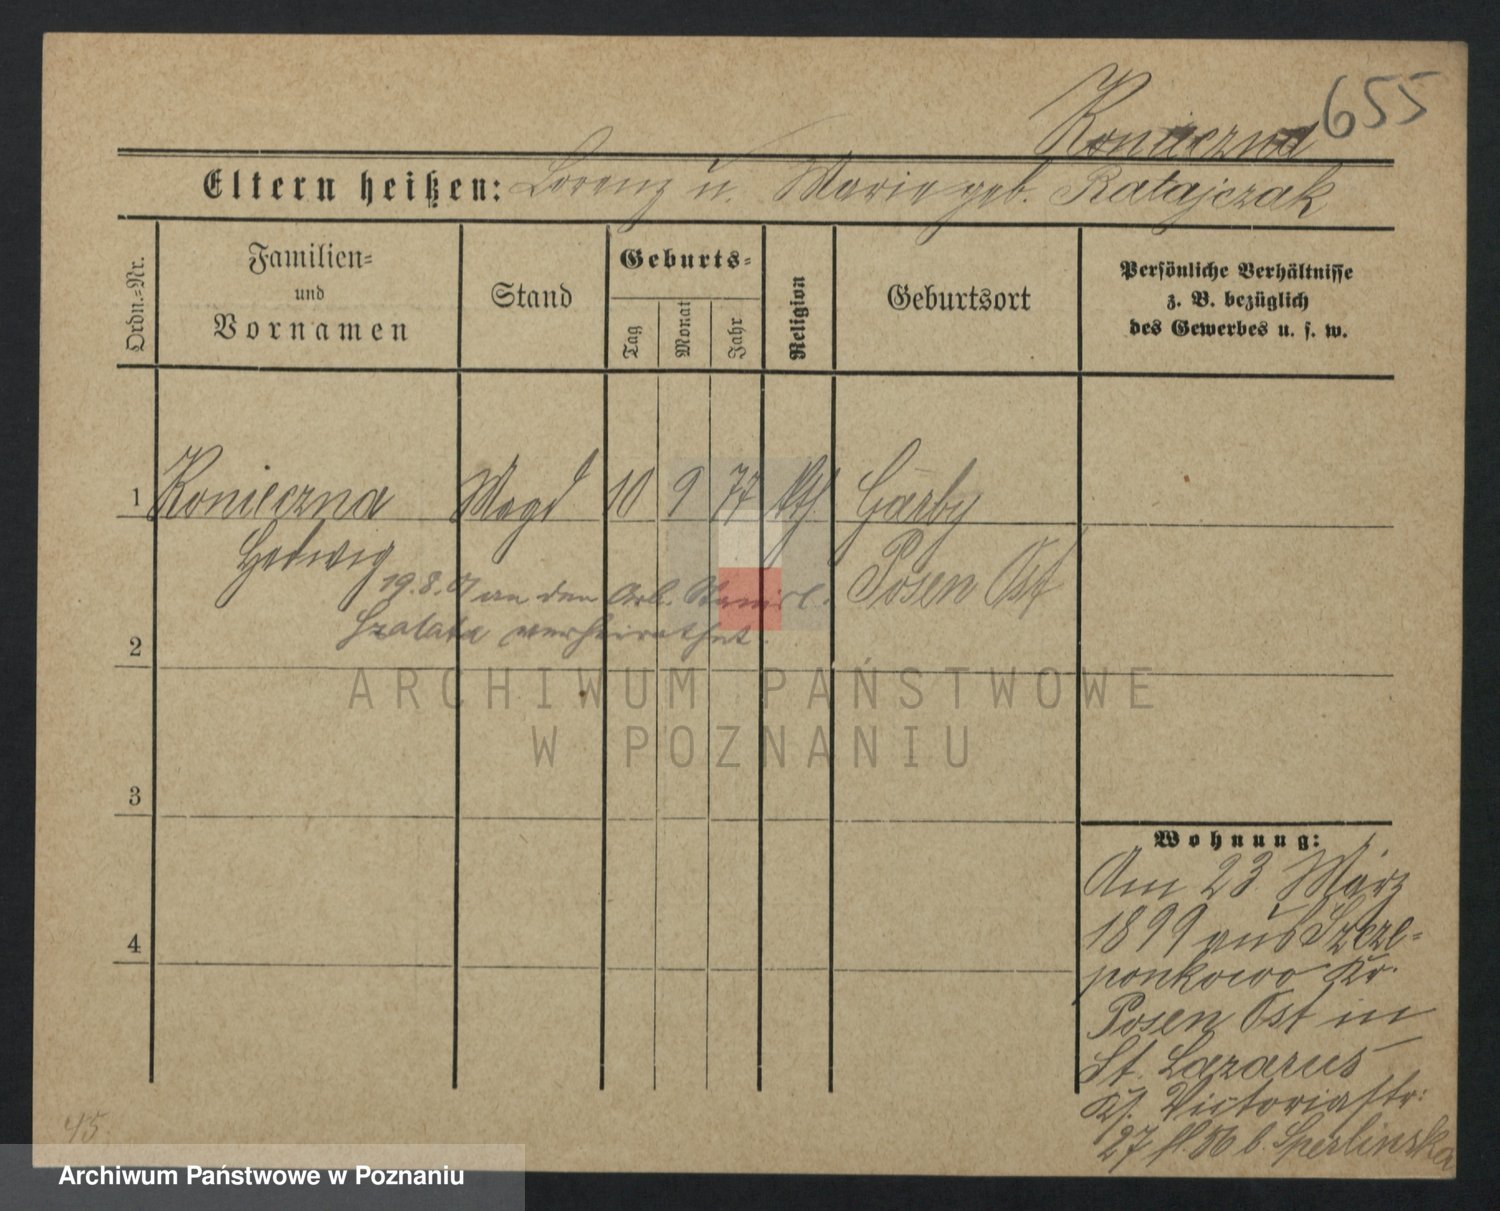 655
Konieczna
Eltern heißen: Lorenz u. Marie geb. Ratajczak
Ordn.-Nr.
Familien- und Vornamen
Stand
Geburts-
Tag
Monat
Jahr
Religion
Geburtsort
Persönliche Verhältnisse
z. B. bezüglich
des Gewerbes u. s. w.
1 Konieczna Magd 10 9 77 kth. Garby
Hedwig Posen Ost
19.8.01 an den Arb. Stanisl.
Szalata verheirathet.
2
3
4
ARCHIWUM PAŃSTWOWE
W POZNANIU
Wohnung:
Am 23 März
1899 aus Szcze-
ponkowo Kr.
Posen Ost in
St. Lazarus
Victoriastr:
27 b. Sperlinska
45
Archiwum Państwowe w Poznaniu